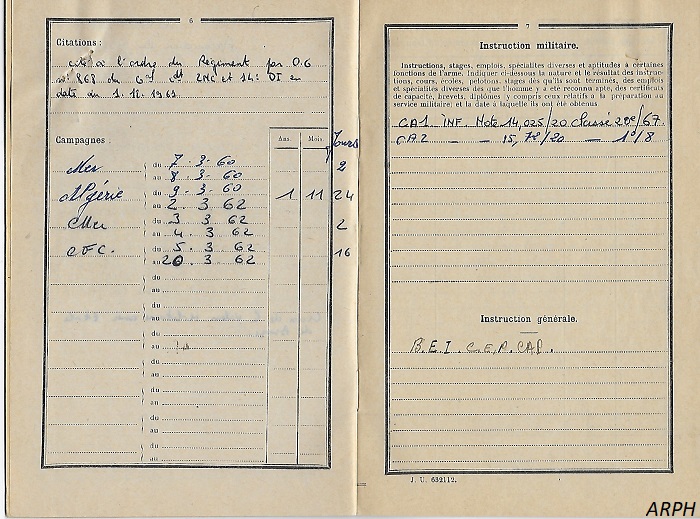 6
Citations :
cité à l'ordre du Régiment par O.G
n° 868 du Gal Ct ZNC et 14e DI en
date du 1.12.1961
Campagnes :
Ans. Mois Jours
Mer du 7. 3. 60
au 8. 3. 60 2
Algérie du 9. 3. 60
au 2. 3. 62 1 11 24
Mer du 3 3 62
au 4. 3. 62 2
du 5. 3. 62
au 20. 3. 62 16
du
au
du
au
du
au
du
au
du
au
du
au
du
au
7
Instruction militaire.
Instructions, stages, emplois, spécialités diverses et aptitudes à certaines
fonctions de l'arme. Indiquer ci-dessous la nature et le résultat des instruc-
tions, cours, écoles, pelotons, stages dès qu'ils sont terminés, des emplois
et spécialités diverses dès que l'homme y a été reconnu apte, des certificats
de capacité, brevets, diplômes y compris ceux relatifs à la préparation au
service militaire, et la date à laquelle ils ont été obtenus
CA1 INF. Note 14,025/20 classé 29e/67.
CA2 — — 15,78/20 — 1°/8
Instruction générale.
B.E.I. C.E.P. CAP.
J. U. 632112.
ARPH